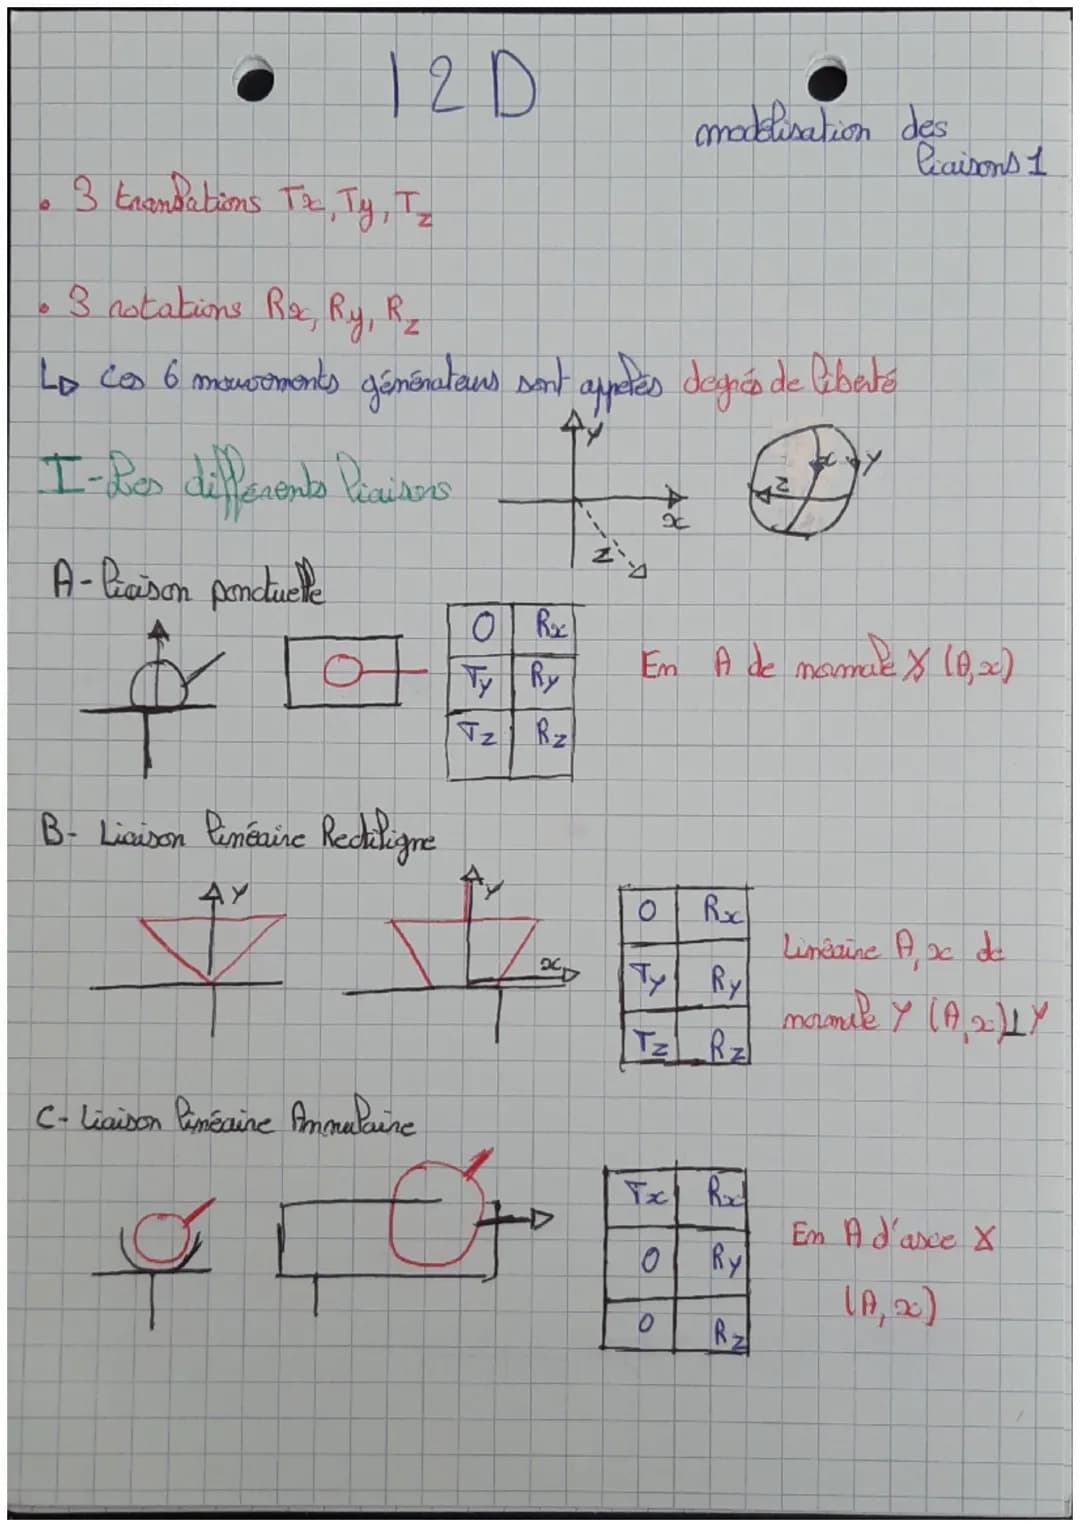 I2D
modélisation des
liaisons 1
• 3 translations Tx, Ty, Tz
• 3 rotations Rx, Ry, Rz
↳ Ces 6 mouvements générateurs sont appelés degrés de liberté
I-Les différents liaisons
y
x
z
x
y
z
A-liaison ponctuelle
O Rx
Ty Ry
Tz Rz
En A de normale X (A,x)
B- Liaison linéaire Rectiligne
Y
y
x
O Rx
Ty Ry
Tz Rz
Linéaire A, x de
normale Y (A,x)⊥Y
C- Liaison linéaire Annulaire
Tx Rx
O Ry
O Rz
En A d'axe X
(A, x)